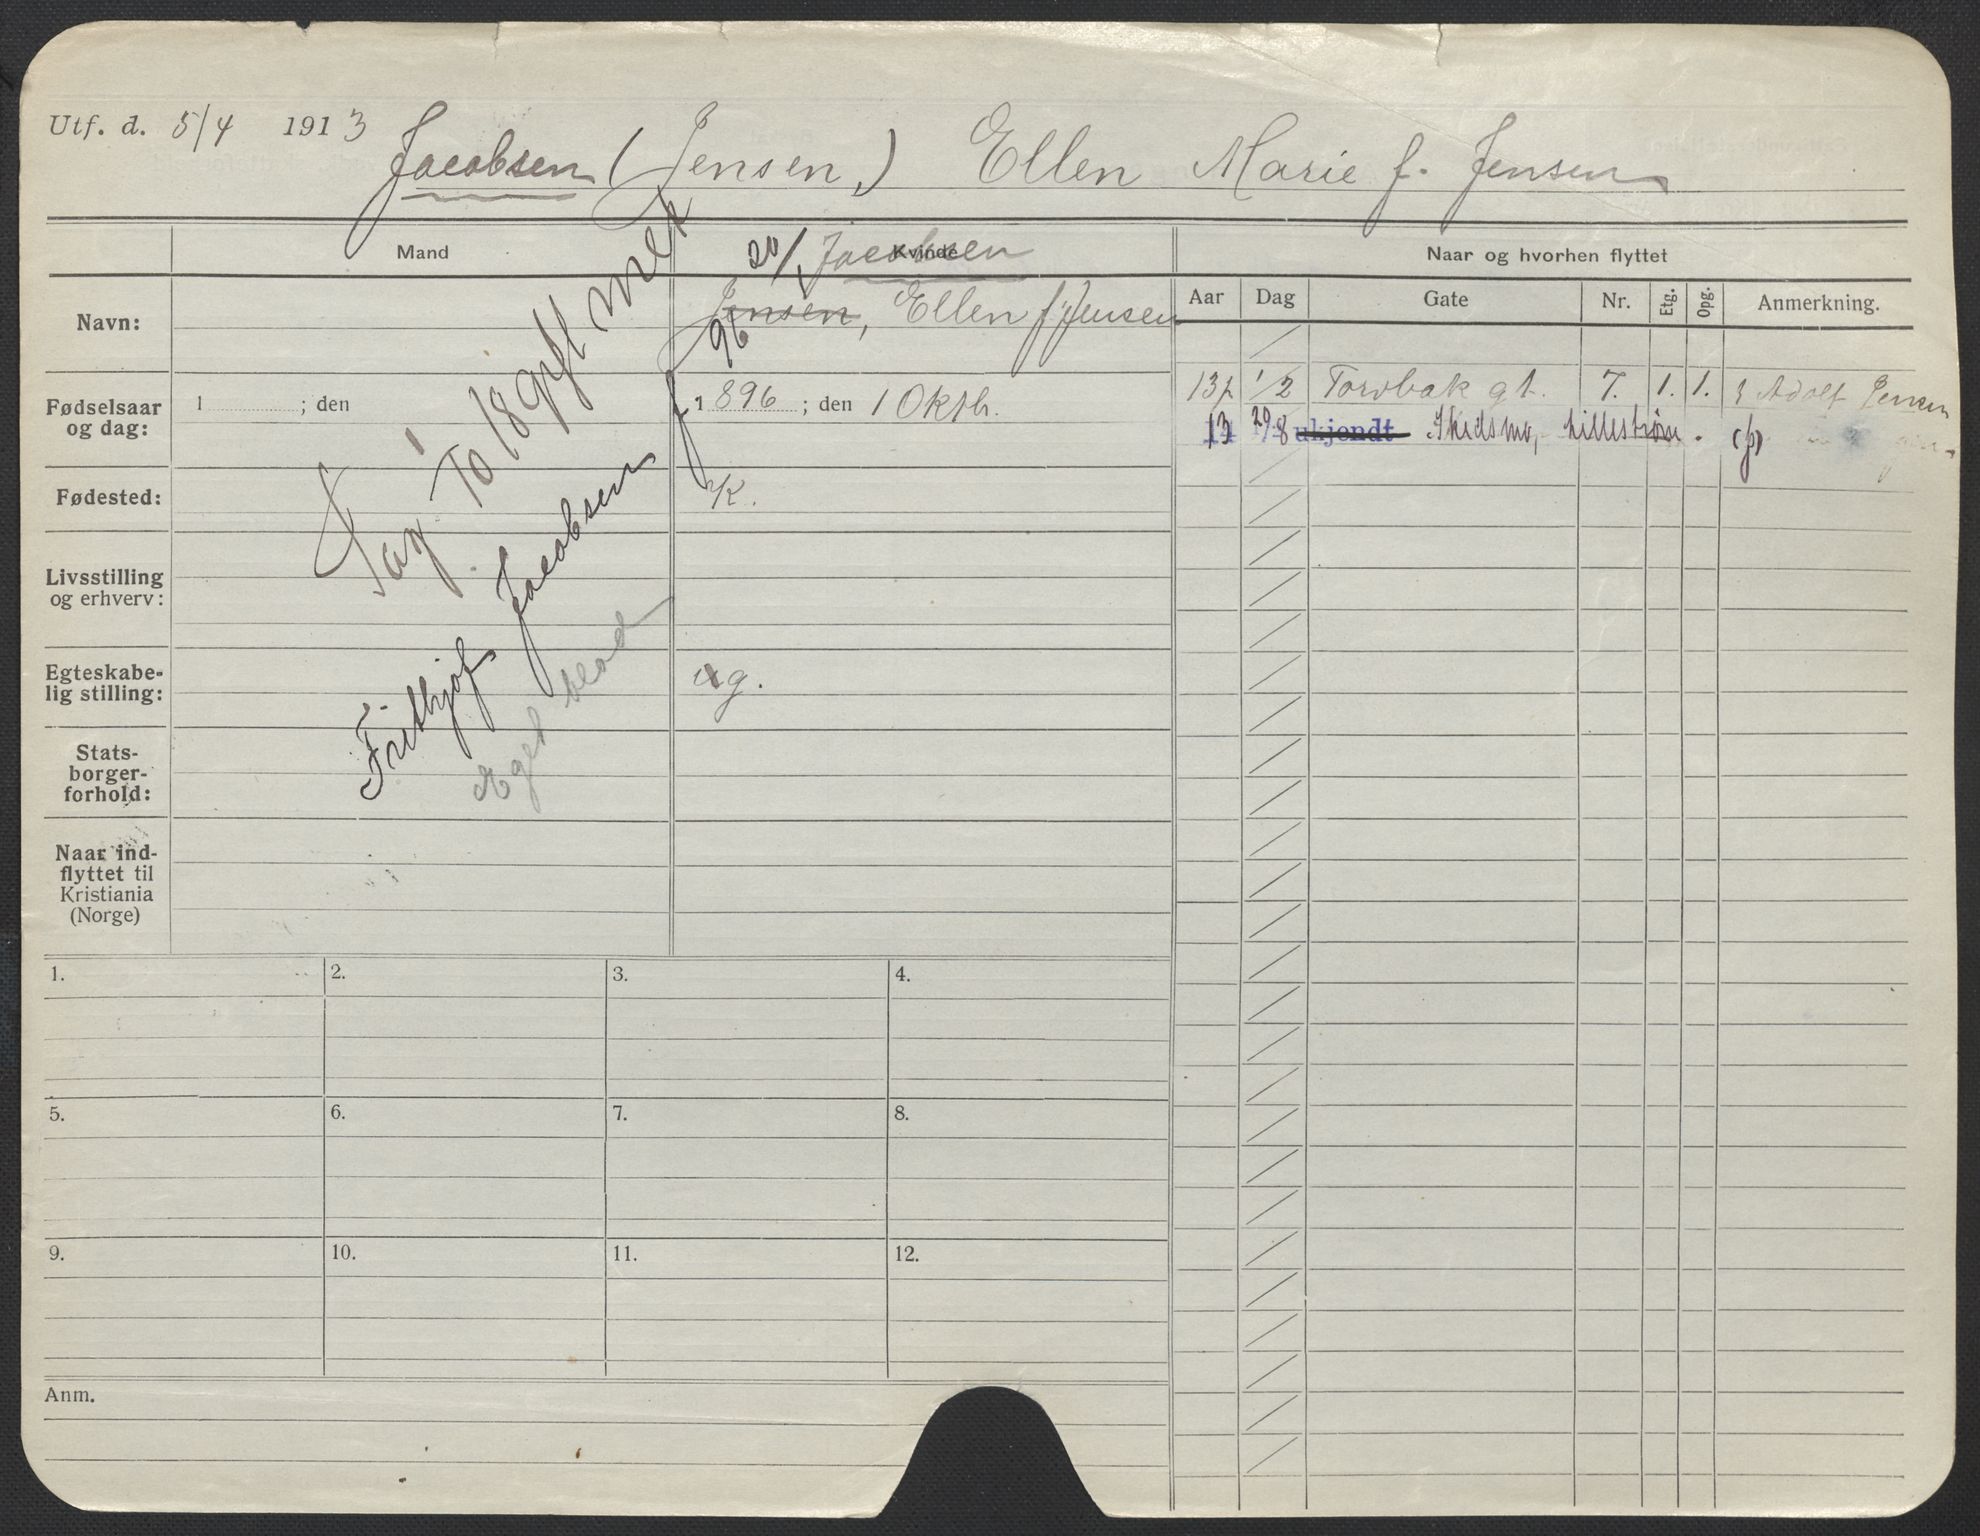 Utf. d. 5/4 1913
Jacobsen (Jensen,) Ellen Marie f. Jensen
Mand
Kvinde
Naar og hvorhen flyttet
Jacobsen
Navn:
Jensen, Ellen f Jensen
Aar Dag Gate Nr. Etg. Opg. Anmerkning.
Fødselsaar
og dag:
1 ; den
1896 ; den 1 Oktb.
13 1/2 Torvbak gt. 7. 1. 1. Adolf Jensen
13 29/8 ukjendt Skedsmo, Lillestrøm.
Fødested:
K.
Livsstilling
og erhverv:
Egteskabe-
lig stilling:
ug.
Stats-
borger-
forhold:
Naar ind-
flyttet til
Kristiania
(Norge)
18 gift med 20/1 96
Frithjof Jacobsen
Eget blad
1. 2. 3. 4.
5. 6. 7. 8.
9. 10. 11. 12.
Anm.